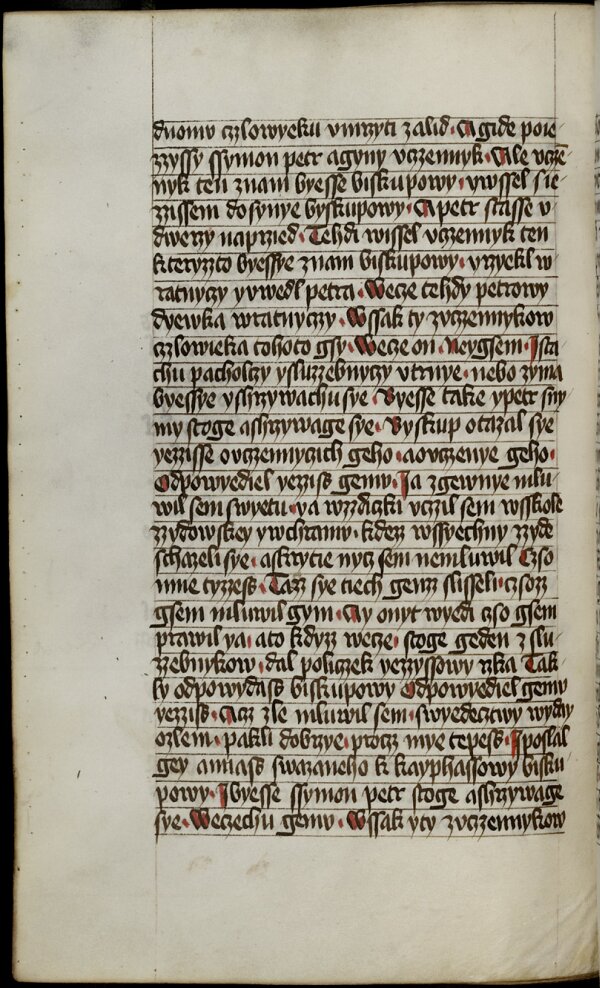 dnomv czlowyeku vmrzyti zalid · A gide po ie
zzyssy ssymon petr agyny vczennyk · Ale vcze
nyk ten znam byesse biskupowy · ywssel s ie
zzissem dosynye byskupowy · A petr stasse v
dwerzy naprzied · Tehdi wissel vczennyk ten
kteryzzto byessye znam biskupowy · yrzyekl w
ratnyczy yvwedl petra · Wecze tehdy petrowy
dyewka wratnyczy · Wssak ty zvczennykow
czlowieka tohoto gsy · Wecze on · Neygsem · Ista
chu pacholczy ysluzzebnyczy vtrnye · nebo zyma
byessye yshrzywachu sye · Byesse takie ypetr sny
my stoge ashrzywage sye · Byskup otazal sye
yezzisse ovczennyczich geho · aovczenye geho ·
Odpowyediel yezziss gemv · Ia zgewnye mlu
wil sem swyetu · ya wzzdiczki vczil sem wsskole
zzydowskey ywchramv · kdezz wssyechny zzyde
schazeli sye · askrytie nycz sem nemluwil Czso
mne tyezzess · Tazz sye tiech genz slisseli · czsozz
gsem mluwil gym · Ay onyt wyedi czso gsem
prawil ya · ato kdyzz wecze · stoge geden z slu
zzebnykow · dal policzek yezzyssowy rzka Tak
ly odpowydass biskupowy Odpowyediel gemv
yezziss · Acz zle mluwil sem · swyedecztwy wyday
ozlem · pakli dobrzye · procz mye tepess · I poslal
gey annass swazaneho k kayphassowy bisku
powy · I byesse ssymon petr stoge ashrzywage
sye · Weczechu gemv · Wssak yty zvczennykow